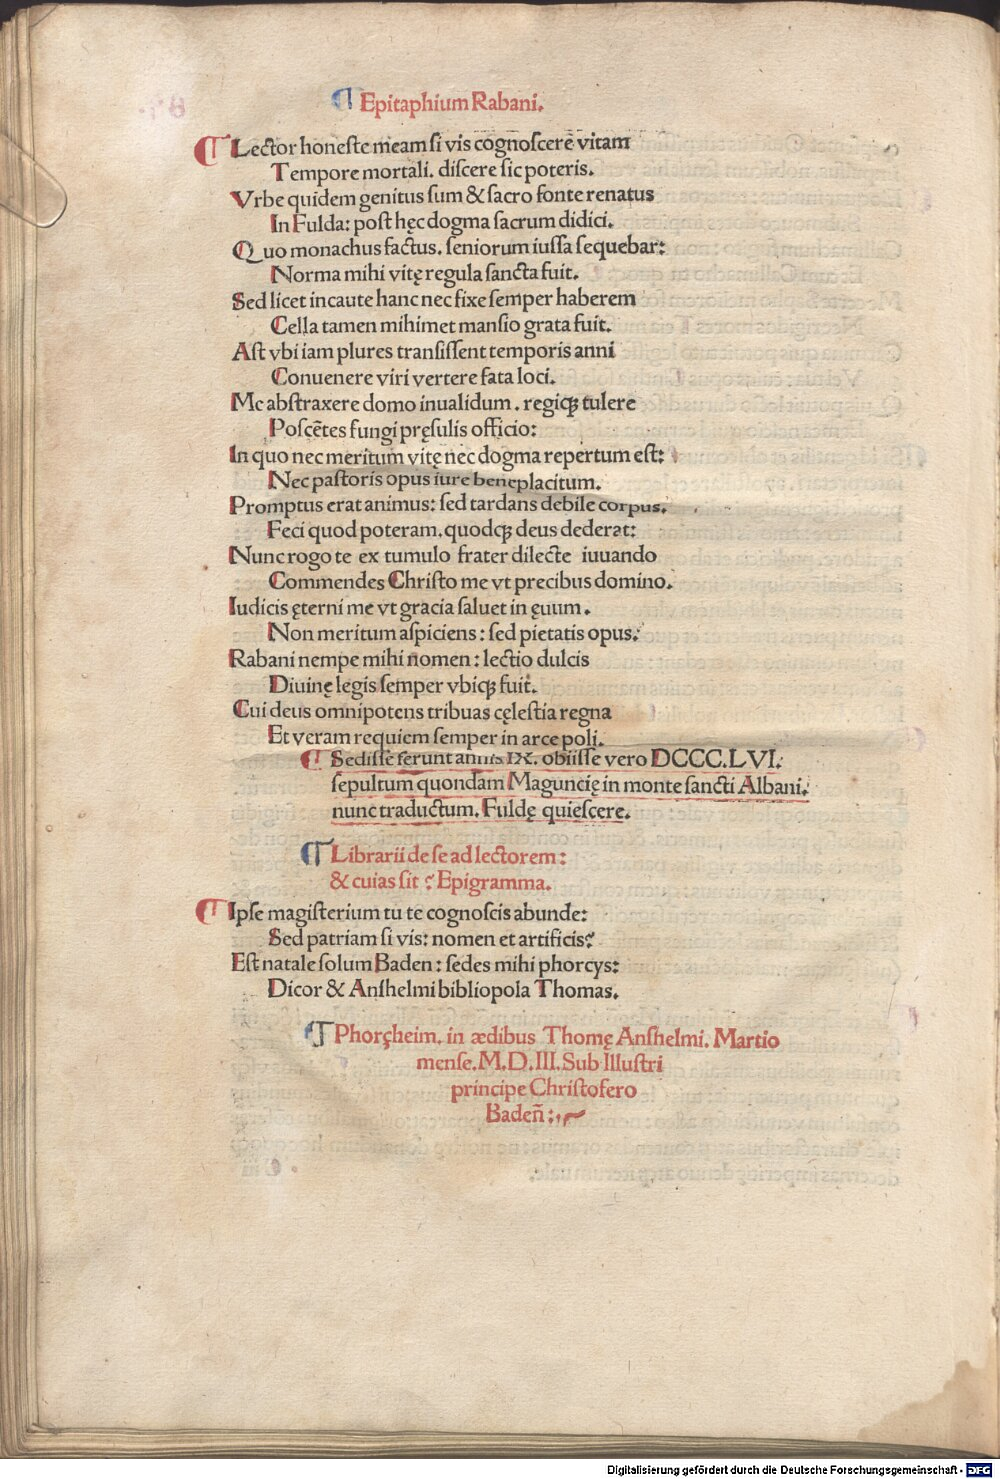 ¶ Epitaphium Rabani.
¶ Lector honeste meam si vis cognoscere vitam
Tempore mortali. discere sic poteris.
Vrbe quidem genitus sum & sacro fonte renatus
In Fulda: post hęc dogma sacrum didici.
Quo monachus factus. seniorum iussa sequebar:
Norma mihi vitę regula sancta fuit.
Sed licet incaute hanc nec fixe semper haberem
Cella tamen mihimet mansio grata fuit.
Ast vbi iam plures transissent temporis anni
Conuenere viri vertere fata loci.
Me abstraxere domo inualidum. regiqȝ tulere
Poscētes fungi pręsulis officio:
In quo nec meritum vitę nec dogma repertum est:
Nec pastoris opus iure beneplacitum.
Promptus erat animus: sed tardans debile corpus.
Feci quod poteram. quodqȝ deus dederat:
Nunc rogo te ex tumulo frater dilecte iuuando
Commendes Christo me vt precibus domino.
Iudicis ęterni me vt gracia saluet in ęuum.
Non meritum aspiciens: sed pietatis opus.
Rabani nempe mihi nomen: lectio dulcis
Diuinę legis semper vbiqȝ fuit.
Cui deus omnipotens tribuas cęlestia regna
Et veram requiem semper in arce poli.
¶ Sedisse ferunt annis IX. obiisse vero DCCC.LVI.
sepultum quondam Maguncię in monte sancti Albani.
nunc traductum. Fuldę quiescere.
¶ Librarii de se ad lectorem:
& cuias sit ? Epigramma.
¶ Ipse magisterium tu te cognoscis abunde:
Sed patriam si vis: nomen et artificis?
Est natale solum Baden: sedes mihi phorcys:
Dicor & Anshelmi bibliopola Thomas.
¶ Phorçheim. in ædibus Thomę Anshelmi. Martio
mense. M.D.III. Sub Illustri
principe Christofero
Badeñ:
Digitalisierung gefördert durch die Deutsche Forschungsgemeinschaft - DFG